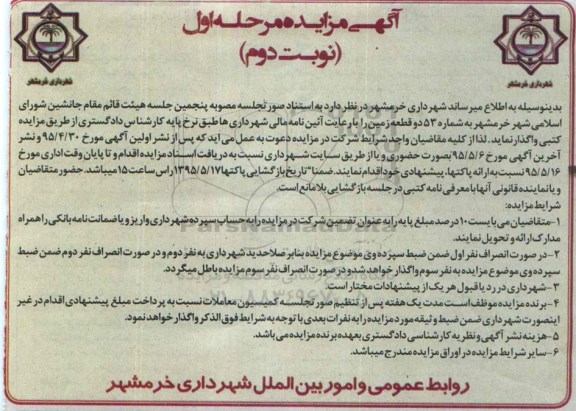 آگهی مزایده مرحله اول
(نوبت دوم)
شهرداری خرمشهر
شهرداری خرمشهر
بدینوسیله به اطلاع میرساند شهرداری خرمشهر در نظر دارد به استناد صورتجلسه مصوبه پنجمین جلسه هیئت قائم مقام جانشین شورای
اسلامی شهر خرمشهر به شماره ۵۳ دو قطعه زمین را با رعایت آئین نامه مالی شهرداری ها طبق نرخ پایه کارشناس دادگستری از طریق مزایده
کتبی واگذار نماید. لذا از کلیه متقاضیان واجد شرایط شرکت در مزایده دعوت به عمل می آید که پس از نشر اولین آگهی مورخ ۹۵/۴/۳۰ و نشر
آخرین آگهی مورخ ۹۵/۵/۶ بصورت حضوری و یا از طریق سایت شهرداری نسبت به دریافت اسناد مزایده اقدام و تا پایان وقت اداری مورخ
۹۵/۵/۱۶ نسبت به ارائه پاکتها، پیشنهادی خود اقدام نمایند. ضمنا" تاریخ بازگشایی پاکتها ۱۳۹۵/۵/۱۷ راس ساعت ۱۵ میباشد. حضور متقاضیان
و یا نماینده قانونی آنها با معرفی نامه کتبی در جلسه بازگشایی بلامانع است.
شرایط مزایده:
۱-متقاضیان می بایست ۱۰ درصد مبلغ پایه را به عنوان تضمین شرکت در مزایده را به حساب سپرده شهرداری واریز و یا ضمانت نامه بانکی را همراه
مدارک ارائه و تحویل نمایند.
۲-در صورت انصراف نفر اول ضمن ضبط سپرده وی موضوع مزایده بنابر صلاحدید شهرداری به نفر دوم و در صورت انصراف نفر دوم ضمن ضبط
سپرده وی موضوع مزایده به نفر سوم واگذار خواهد شد و در صورت انصراف نفر سوم مزایده باطل میگردد.
۳-شهرداری در رد یا قبول هر یک از پیشنهادات مختار است.
۴-برنده مزایده موظف است مدت یک هفته پس از تنظیم صورتجلسه کمیسیون معاملات نسبت به پرداخت مبلغ پیشنهادی اقدام در غیر
اینصورت شهرداری ضمن ضبط وثیقه مورد مزایده را به نفرات بعدی با توجه به شرایط فوق الذکر واگذار خواهد نمود.
۵-هزینه نشر آگهی و نظریه کارشناسی دادگستری بعهده برنده مزایده می باشد.
۶-سایر شرایط مزایده در اوراق مزایده مندرج میباشد.
روابط عمومی و امور بین الملل شهرداری خرمشهر
ParsNamadData